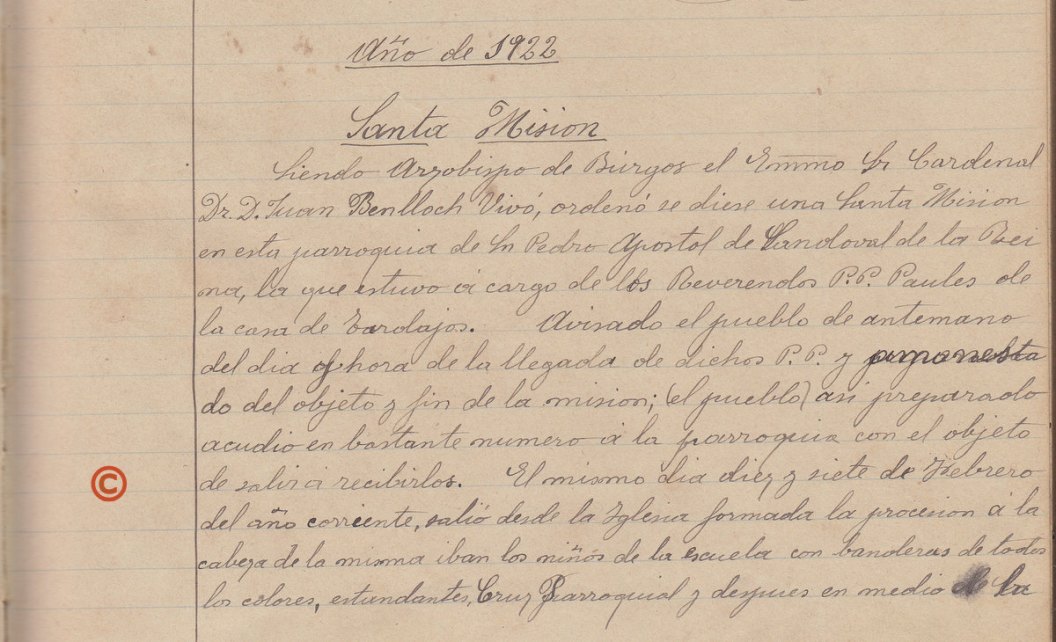 Año de 1922
Santa Mision
Siendo Arzobispo de Burgos el Emmo Sr Cardenal
Dr. D. Juan Benlloch Vivó, ordenó se diese una Santa Mision
en esta parroquia de Sn Pedro Apostol de Sandoval de la Rei
na, la que estuvo á cargo de los Reverendos P.P. Paules de
la casa de Tardajos. Avisado el pueblo de antemano
del dia y hora de la llegada de dichos P.P. y amonesta
do del objeto y fin de la mision; (el pueblo) asi preparado
acudio en bastante numero á la parroquia con el objeto
de salir á recibirlos. El mismo dia diez y siete de Febrero
del año corriente, salió desde la Iglesia formada la procesion á la
cabeza de la misma iban los niños de la escuela con banderas de todos
los colores, estandantes, Cruz Parroquial y despues en medio de la
©